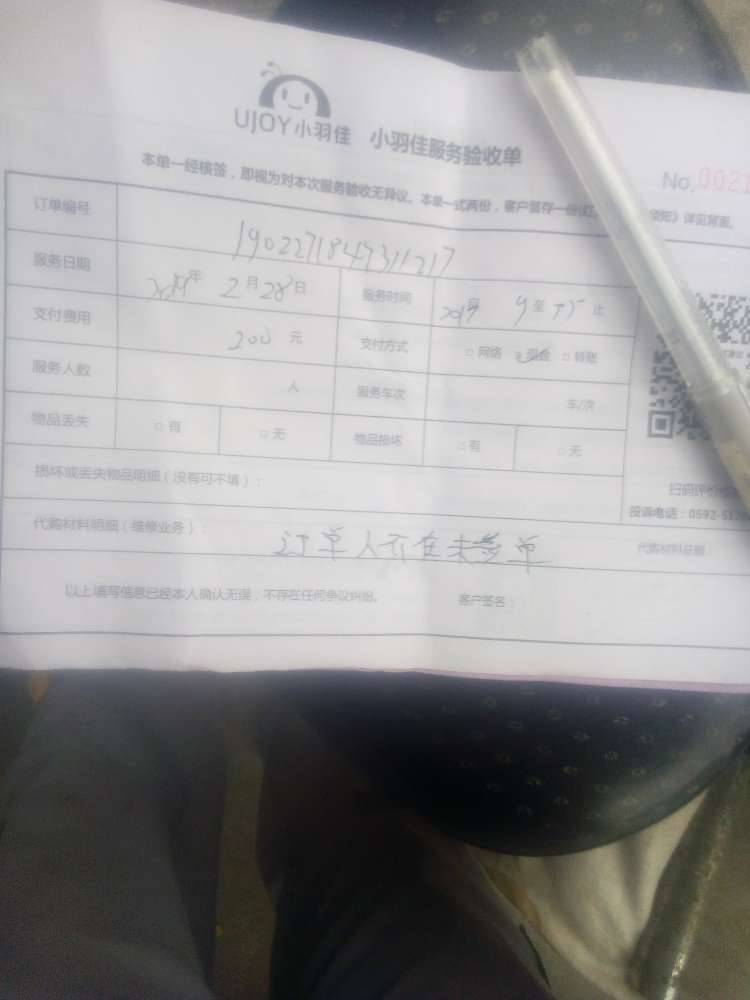 UJOY小羽佳 小羽佳服务验收单
本单一经核签，即视为对本次服务验收无异议。本单一式两份，客户留存一份(红 详见背面。
No,0021
订单编号 190227184731217
服务日期 2019年 2月28日 服务时间 9至 止
支付费用 200 元 支付方式 □网络 ☑现金 □转账
服务人数 人 服务车次 车/次
物品丢失 □有 □无 物品损坏 □有 □无
扫码评价
损坏或丢失物品明细（没有可不填）：
投诉电话：0592-
代购材料明细（维修业务）： 代购材料总额
订单人不在未签单
以上填写信息已经本人确认无误，不存在任何争议纠纷。 客户签名：